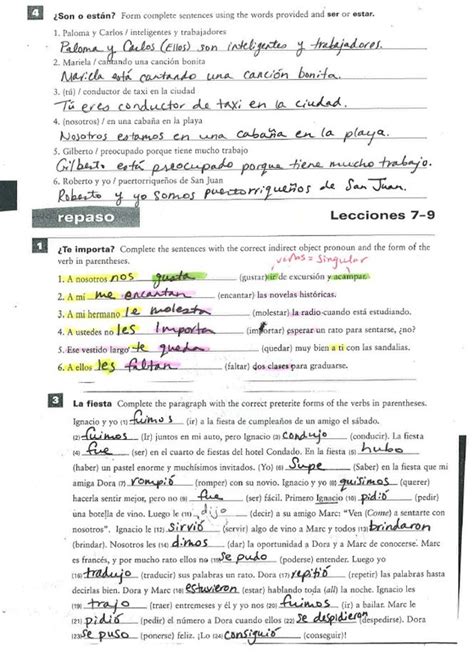 4 ¿Son o están? Form complete sentences using the words provided and ser or estar.
1. Paloma y Carlos / inteligentes y trabajadores
Paloma y Carlos (Ellos) son inteligentes y trabajadores.
2. Mariela / cantando una canción bonita
Mariela está cantando una canción bonita.
3. (tú) / conductor de taxi en la ciudad
Tú eres conductor de taxi en la ciudad.
4. (nosotros) / en una cabaña en la playa
Nosotros estamos en una cabaña en la playa.
5. Gilberto / preocupado porque tiene mucho trabajo
Gilberto está preocupado porque tiene mucho trabajo.
6. Roberto y yo / puertorriqueños de San Juan
Roberto y yo somos puertorriqueños de San Juan.
repaso Lecciones 7–9
1 ¿Te importa? Complete the sentences with the correct indirect object pronoun and the form of the
verb in parentheses. verbos = singular
1. A nosotros nos gusta (gustar) ir de excursión y acampar.
2. A mí me encantan (encantar) las novelas históricas.
3. A mi hermano le molesta (molestar) la radio cuando está estudiando.
4. A ustedes no les importa (importar) esperar un rato para sentarse, ¿no?
5. Ese vestido largo te queda (quedar) muy bien a ti con las sandalias.
6. A ellos les faltan (faltar) dos clases para graduarse.
3 La fiesta Complete the paragraph with the correct preterite forms of the verbs in parentheses.
Ignacio y yo (1) fuimos (ir) a la fiesta de cumpleaños de un amigo el sábado.
(2) fuimos (Ir) juntos en mi auto, pero Ignacio (3) condujo (conducir). La fiesta
(4) fue (ser) en el cuarto de fiestas del hotel Condado. En la fiesta (5) hubo
(haber) un pastel enorme y muchísimos invitados. (Yo) (6) Supe (Saber) en la fiesta que mi
amiga Dora (7) rompió (romper) con su novio. Ignacio y yo (8) quisimos (querer)
hacerla sentir mejor, pero no (9) fue (ser) fácil. Primero Ignacio (10) pidió (pedir)
una botella de vino. Luego le (11) dijo (decir) a su amigo Marc: "Ven (Come) a sentarte con
nosotros". Ignacio le (12) sirvió (servir) algo de vino a Marc y todos (13) brindaron
(brindar). Nosotros les (14) dimos (dar) la oportunidad a Dora y a Marc de conocerse. Marc
es francés, y por mucho rato ellos no (15) se pudo (poderse) entender. Luego yo
(16) tradujo (traducir) sus palabras un rato. Dora (17) repitió (repetir) las palabras hasta
decirlas bien. Dora y Marc (18) estuvieron (estar) hablando toda (all) la noche. Ignacio les
(19) trajo (traer) entremeses y él y yo nos (20) fuimos (ir) a bailar. Marc le
(21) pidió (pedir) el número a Dora cuando ellos (22) se despidieron (despedirse). Dora
(23) se puso (ponerse) feliz. ¡Lo (24) consiguió (conseguir)!